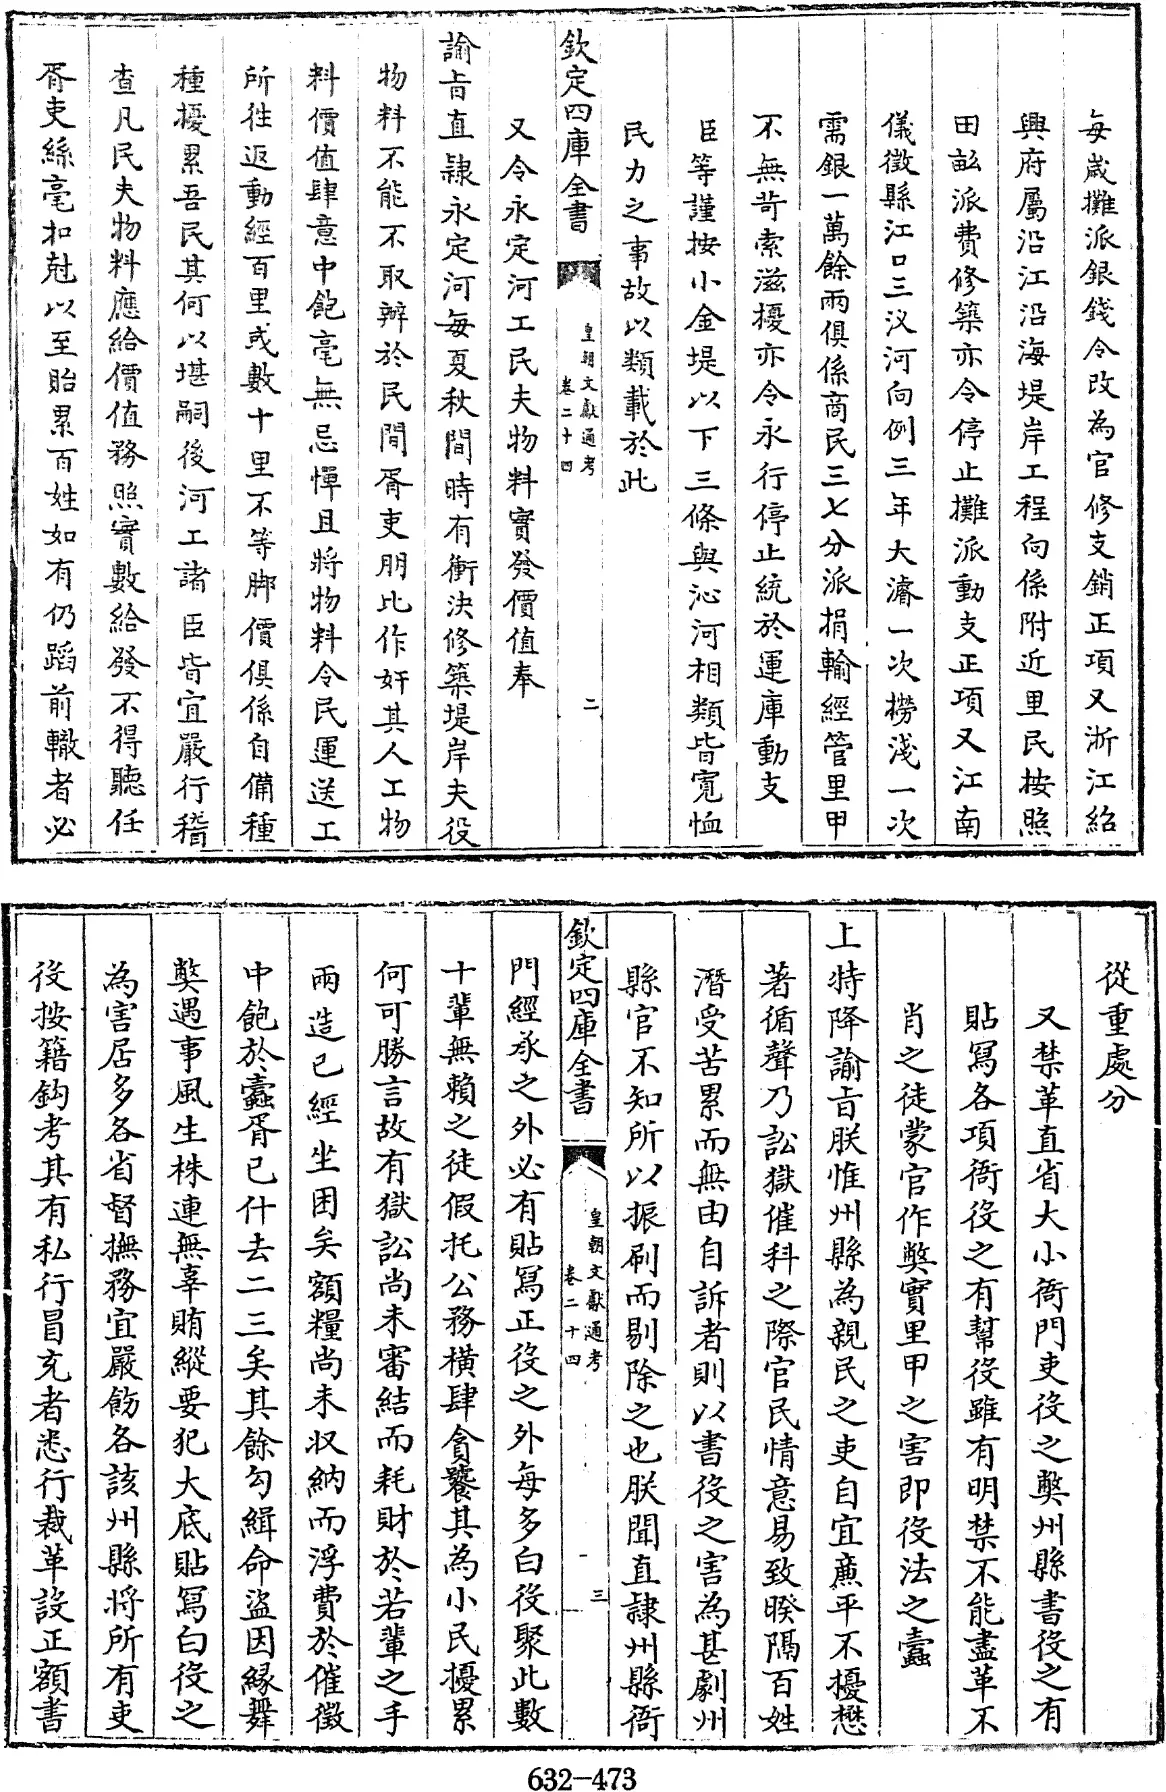 每歲攤派銀錢令改為官修支銷正項又浙江紹
興府屬沿江沿海堤岸工程向係附近里民按照
田畝派費修築亦令停止攤派動支正項又江南
儀徵縣江口三汊河向例三年大濬一次撈淺一次
需銀一萬餘兩俱係商民三七分派捐輸經管里甲
不無苛索滋擾亦令永行停止統於運庫動支
臣等謹按小金堤以下三條與沁河相類皆寛恤
民力之事故以類載於此
欽定四庫全書
皇朝文獻通考
卷二十四
二
又令永定河工民夫物料實發價值奉
諭旨直隸永定河每夏秋間時有衝決修築堤岸夫役
物料不能不取辦於民間胥吏朋比作奸其人工物
料價值肆意中飽毫無忌憚且將物料令民運送工
所徃返動經百里或數十里不等脚價俱係自備種
種擾累吾民其何以堪嗣後河工諸臣皆宜嚴行稽
查凡民夫物料應給價值務照實數給發不得聽任
胥吏絲毫扣尅以至貽累百姓如有仍蹈前轍者必
從重處分
又禁革直省大小衙門吏役之弊州縣書役之有
貼寫各項衙役之有幫役雖有明禁不能盡革不
肖之徒蒙官作弊實里甲之害即役法之蠹
上特降諭旨朕惟州縣為親民之吏自宜亷平不擾懋
著循聲乃訟獄催科之際官民情意易致暌隔百姓
潛受苦累而無由自訴者則以書役之害為甚劇州
縣官不知所以振刷而剔除之也朕聞直隸州縣衙
欽定四庫全書
皇朝文獻通考
卷二十四
三
門經承之外必有貼寫正役之外每多白役聚此數
十輩無賴之徒假托公務橫肆貪饕其為小民擾累
何可勝言故有獄訟尚未審結而耗財於若輩之手
兩造已經坐困矣額糧尚未収納而浮費於催徵
中飽於蠹胥已什去二三矣其餘勾緝命盜因緣舞
弊遇事風生株連無辜賄縱要犯大底貼寫白役之
為害居多各省督撫務宜嚴飭各該州縣將所有吏
役按籍鈎考其有私行冒充者悉行裁革設正額書
632—473